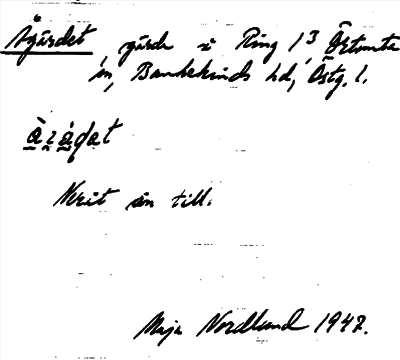 Ågärdet, gärde i Ring 1³ Örtomta
sn, Bankekinds hd, Östg. l.
Nerit ån till.
Maja Nordlund 1947.